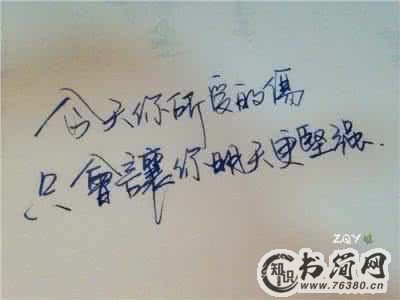 今天你所受的傷
只會讓你明天更堅强.
ZQY
知识 书简网
www.76380.cn